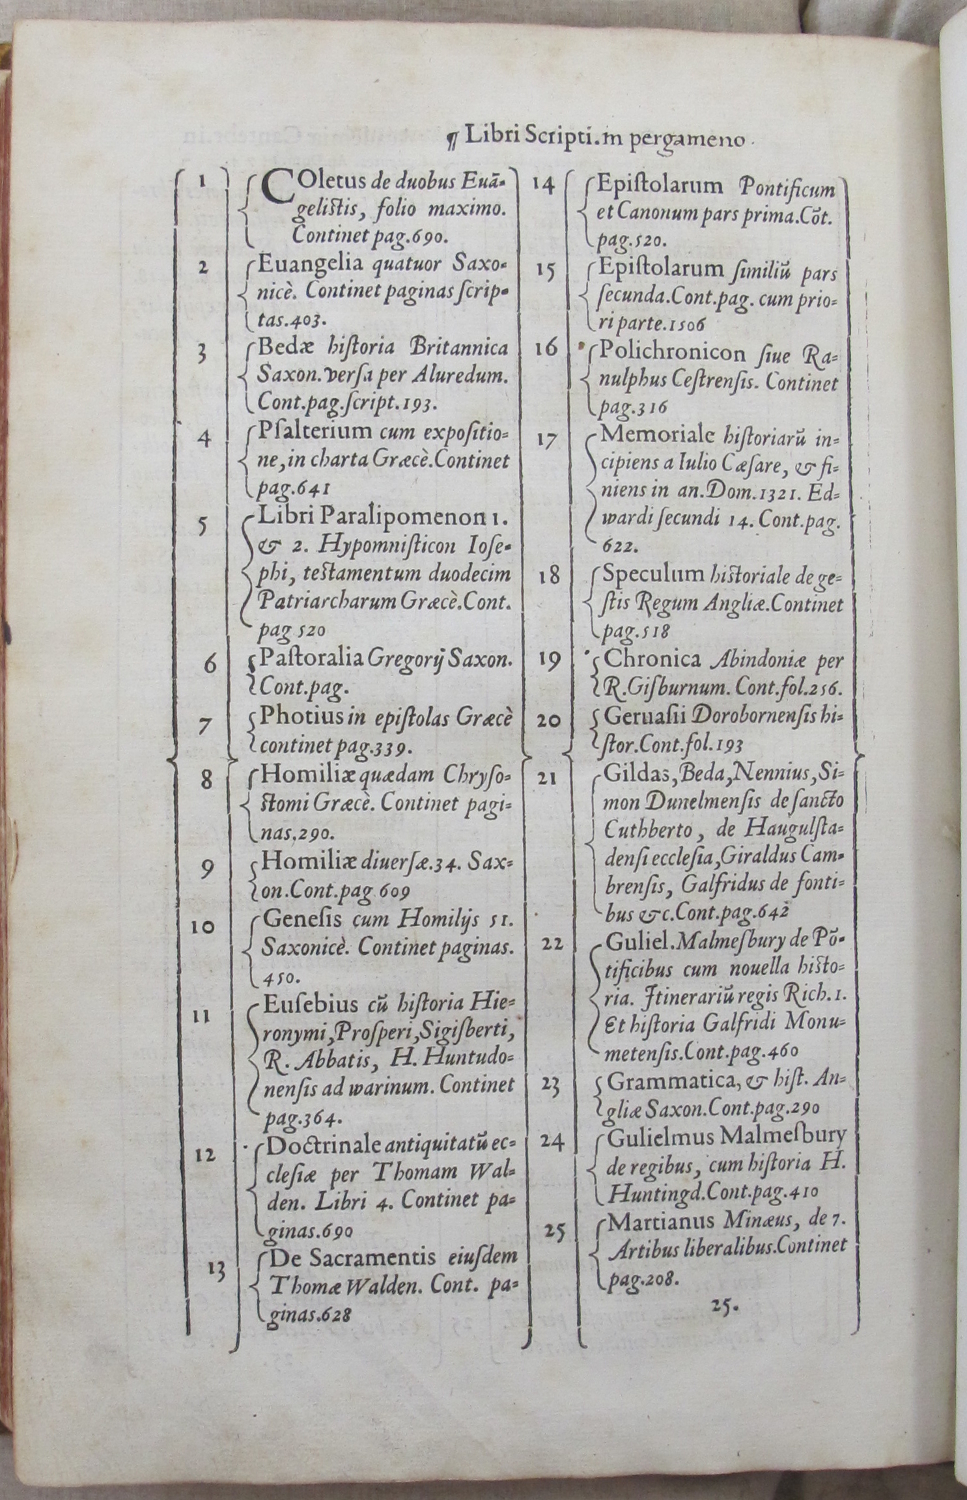 ¶ Libri Scripti. in pergameno.
1 COletus de duobus Euā-
gelistis, folio maximo.
Continet pag.690.
2 Euangelia quatuor Saxo-
nicè. Continet paginas scrip-
tas.403.
3 Bedæ historia Britannica
Saxon. versa per Aluredum.
Cont.pag.script.193.
4 Psalterium cum expositio-
ne, in charta Græcè. Continet
pag.641
5 Libri Paralipomenon 1.
& 2. Hypomnisticon Iose-
phi, testamentum duodecim
Patriarcharum Græcè. Cont.
pag 520
6 Pastoralia Gregorij Saxon.
Cont.pag.
7 Photius in epistolas Græcè
continet pag.339.
8 Homiliæ quædam Chryso-
stomi Græcè. Continet pagi-
nas.290.
9 Homiliæ diuersæ.34. Sax-
on.Cont.pag 609
10 Genesis cum Homilijs 51.
Saxonicè. Continet paginas.
450.
11 Eusebius cū historia Hie-
ronymi, Prosperi, Sigisberti,
R. Abbatis, H. Huntudo-
nensis ad warinum. Continet
pag.364.
12 Doctrinale antiquitatū ec-
clesiæ per Thomam Wal-
den. Libri 4. Continet pa-
ginas.690
13 De Sacramentis eiusdem
Thomæ Walden. Cont. pa-
ginas.628
14 Epistolarum Pontificum
et Canonum pars prima.Cōt.
pag.520.
15 Epistolarum similiū pars
secunda.Cont.pag. cum prio-
ri parte.1506
16 Polichronicon siue Ra-
nulphus Cestrensis. Continet
pag.316
17 Memoriale historiarū in-
cipiens a Iulio Cæsare, & fi-
niens in an.Dom.1321. Ed-
wardi secundi 14. Cont.pag.
622.
18 Speculum historiale de ge-
stis Regum Angliæ.Continet
pag.518
19 Chronica Abindoniæ per
R.Gisburnum. Cont.fol.256.
20 Geruasii Dorobornensis hi-
stor.Cont.fol.193
21 Gildas, Beda, Nennius, Si-
mon Dunelmensis de sancto
Cuthberto, de Haugulsta-
densi ecclesia, Giraldus Cam-
brensis, Galfridus de fonti-
bus &c.Cont.pag.642
22 Guliel.Malmesbury de Pō-
tificibus cum nouella histo-
ria. Itinerariū regis Rich.1.
Et historia Galfridi Monu-
metensis.Cont.pag.460
23 Grammatica, & hist. An-
gliæ Saxon.Cont.pag.290
24 Gulielmus Malmesbury
de regibus, cum historia H.
Huntingd.Cont.pag.410
25 Martianus Minæus, de 7.
Artibus liberalibus.Continet
pag.208.
25.